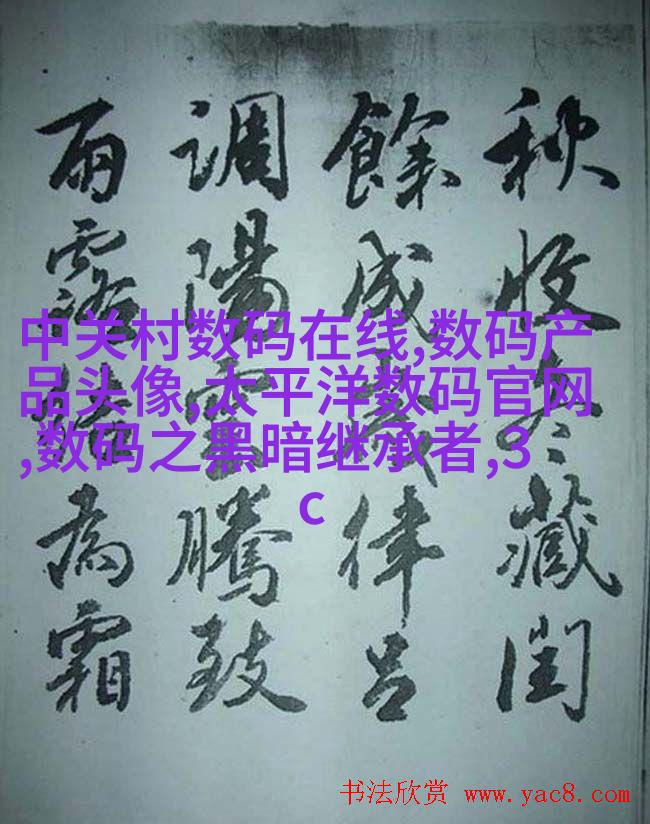 秋收冬藏閏
餘成歲律吕
調陽雲騰致
雨露結為霜
中关村数码在线,数码产
品头像,太平洋数码官网
,数码之黑暗继承者,3
c
书法欣赏 www.yac8.com